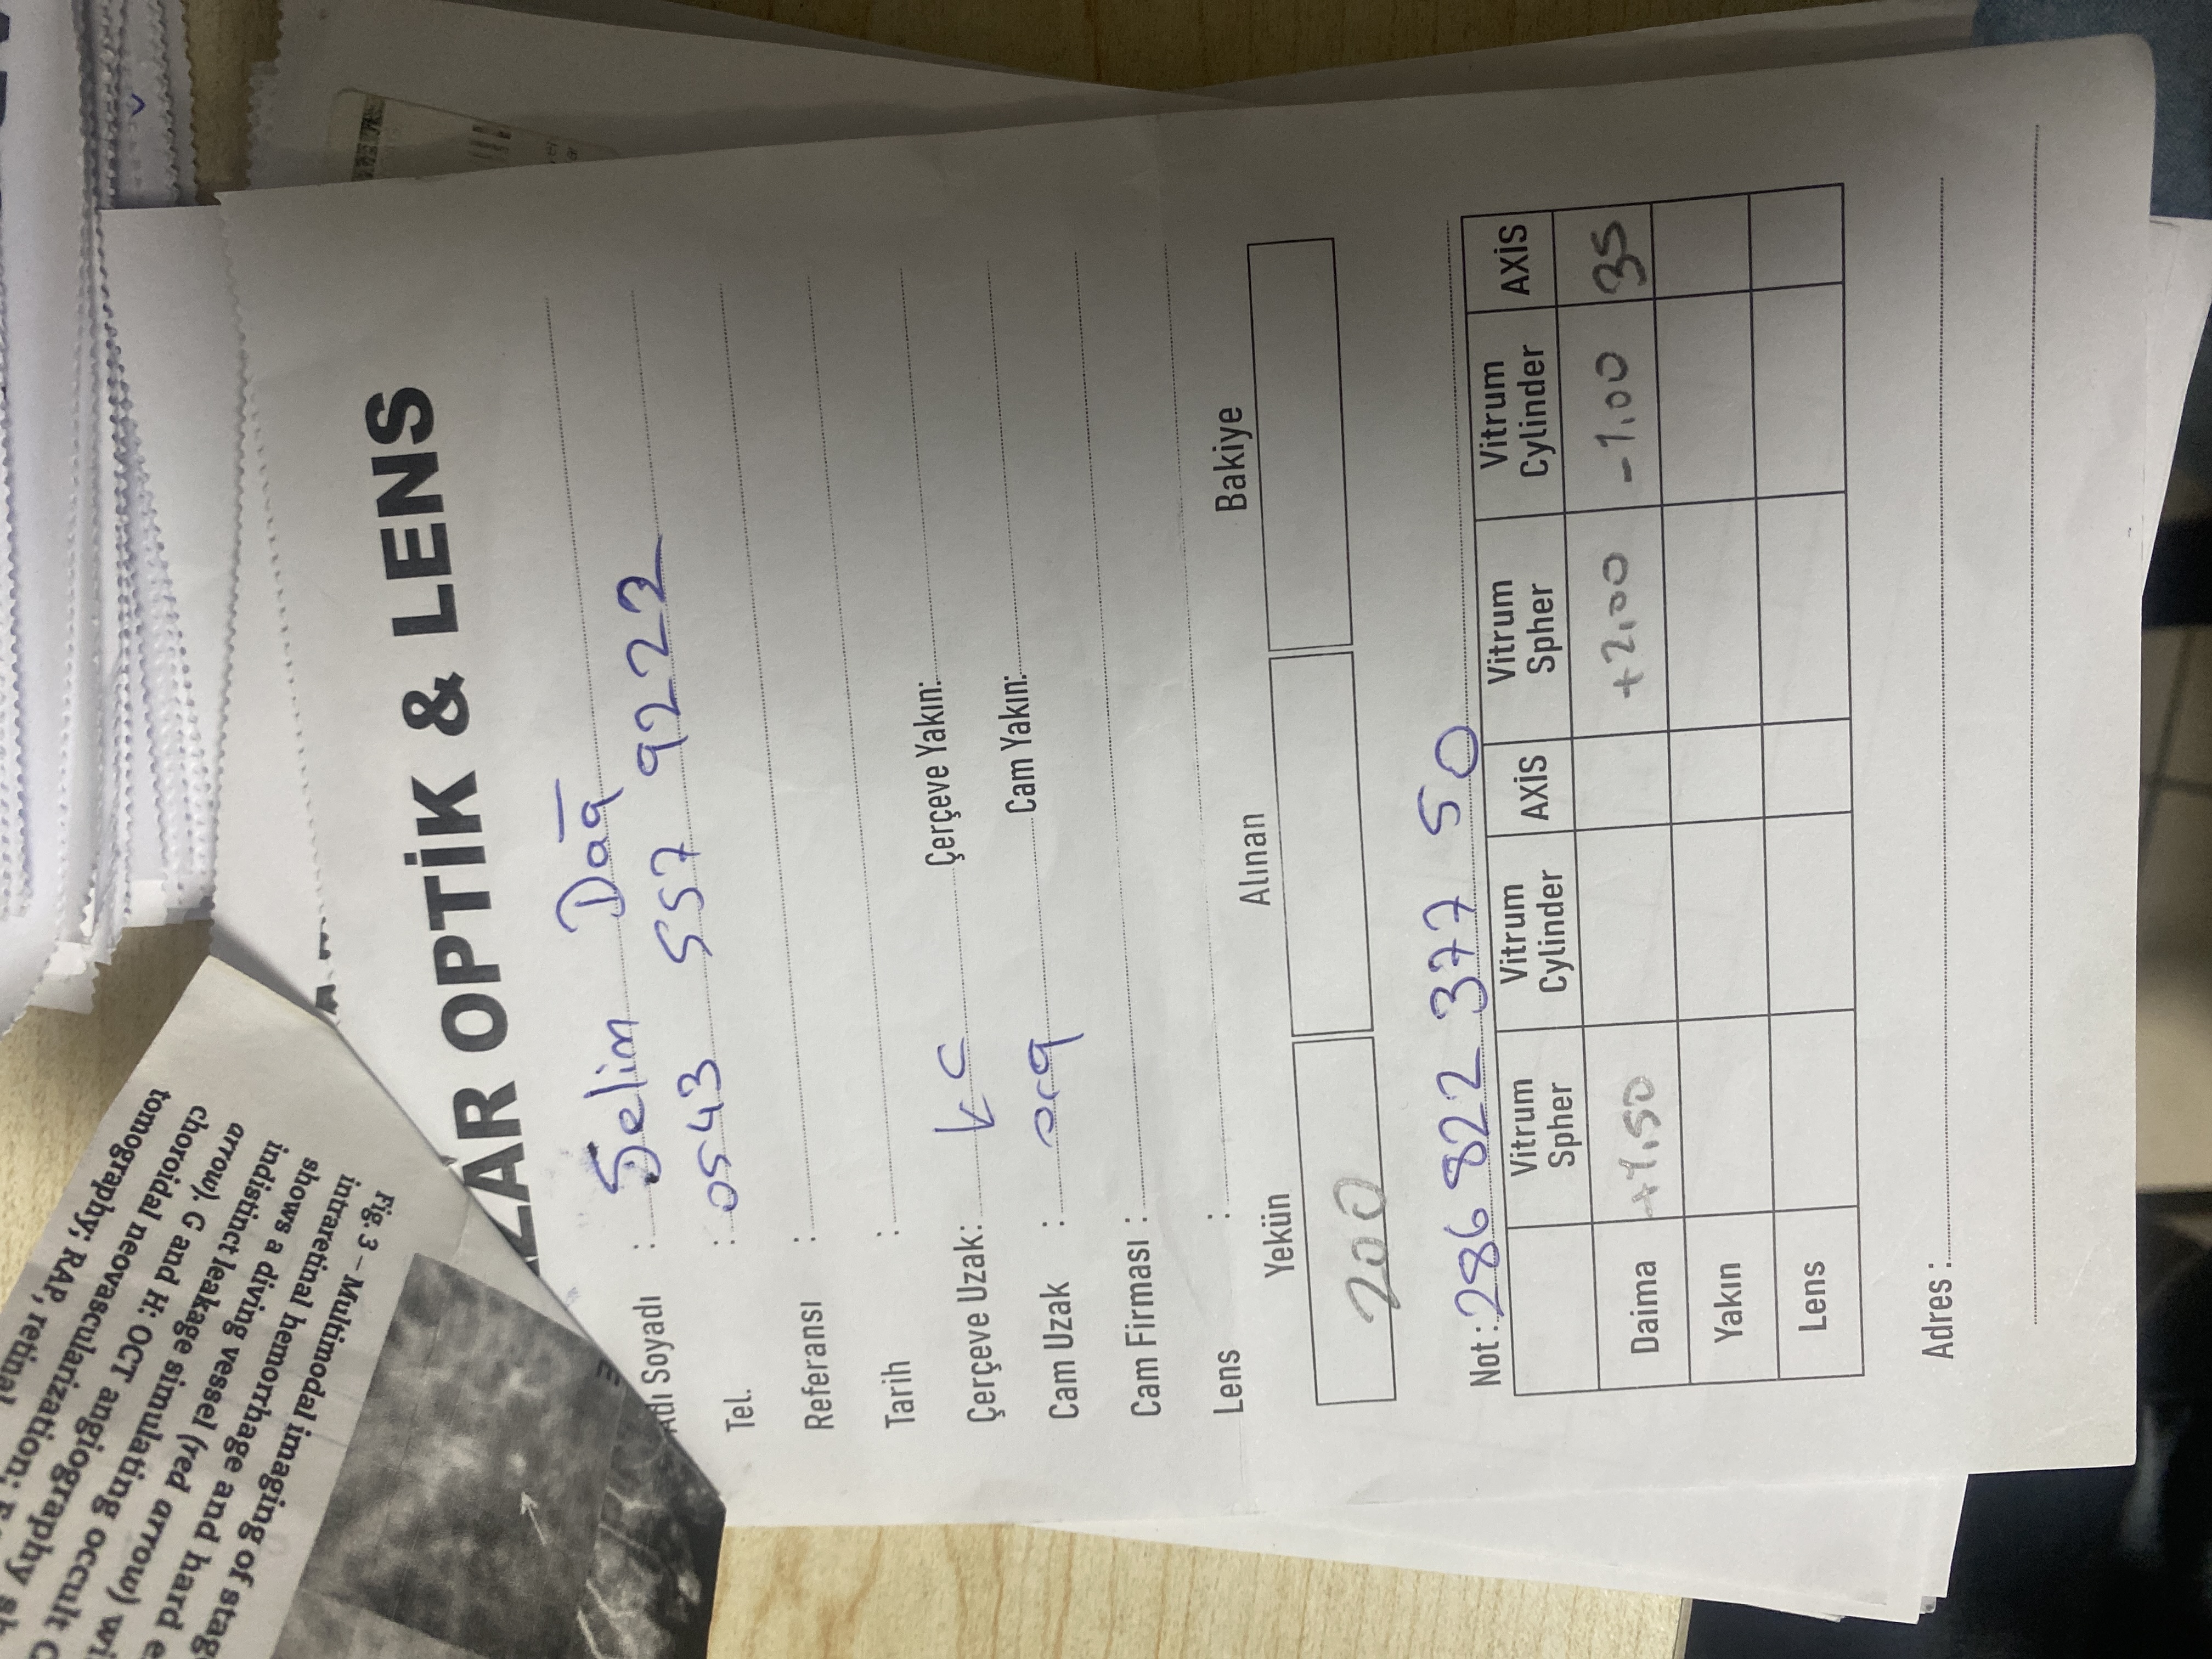 Fig. 3 – Multimodal imaging of stage
intraretinal hemorrhage and hard
shows a diving vessel (red arrow)
indistinct leakage simulating occult
arrow). G and H: OCT angiography
choroidal neovascularization;
tomography; RAP, retinal
OPTİK & LENS
Adı Soyadı : Selim Dağ
Tel. : 0543 557 9222
Referansı :
Tarih :
Çerçeve Uzak: kc Çerçeve Yakın:
Cam Uzak : org Cam Yakın:
Cam Firması :
Lens :
Yekün Alınan Bakiye
200
Not : 286 822 377 50
Vitrum Spher Vitrum Cylinder AXİS Vitrum Spher Vitrum Cylinder AXİS
Daima +1.50 +2,00 -1,00 35
Yakın
Lens
Adres :